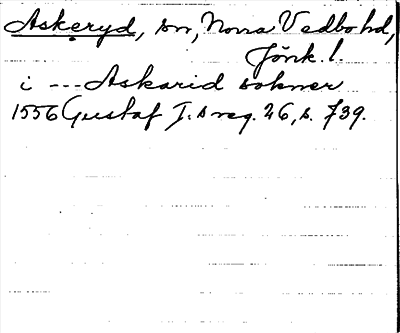 Askeryd, sn, Norra Vedbo hd,
Jönk. l.
i --- Askarid sokner
1556 Gustaf I:s reg. 26, s. 739.